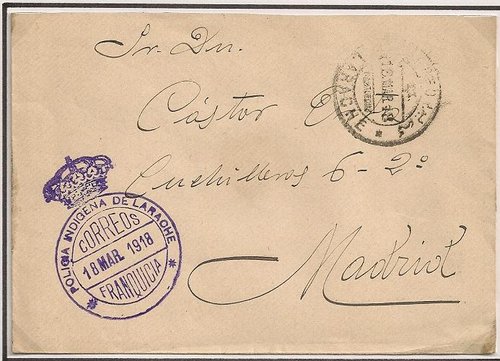 Sr. Dn.
Cástor
Cuchilleros 6-2º
Madrid
LARACHE
18 MAR 18
POLICIA INDIGENA DE LARACHE
CORREOS
18 MAR. 1918
FRANQUICIA